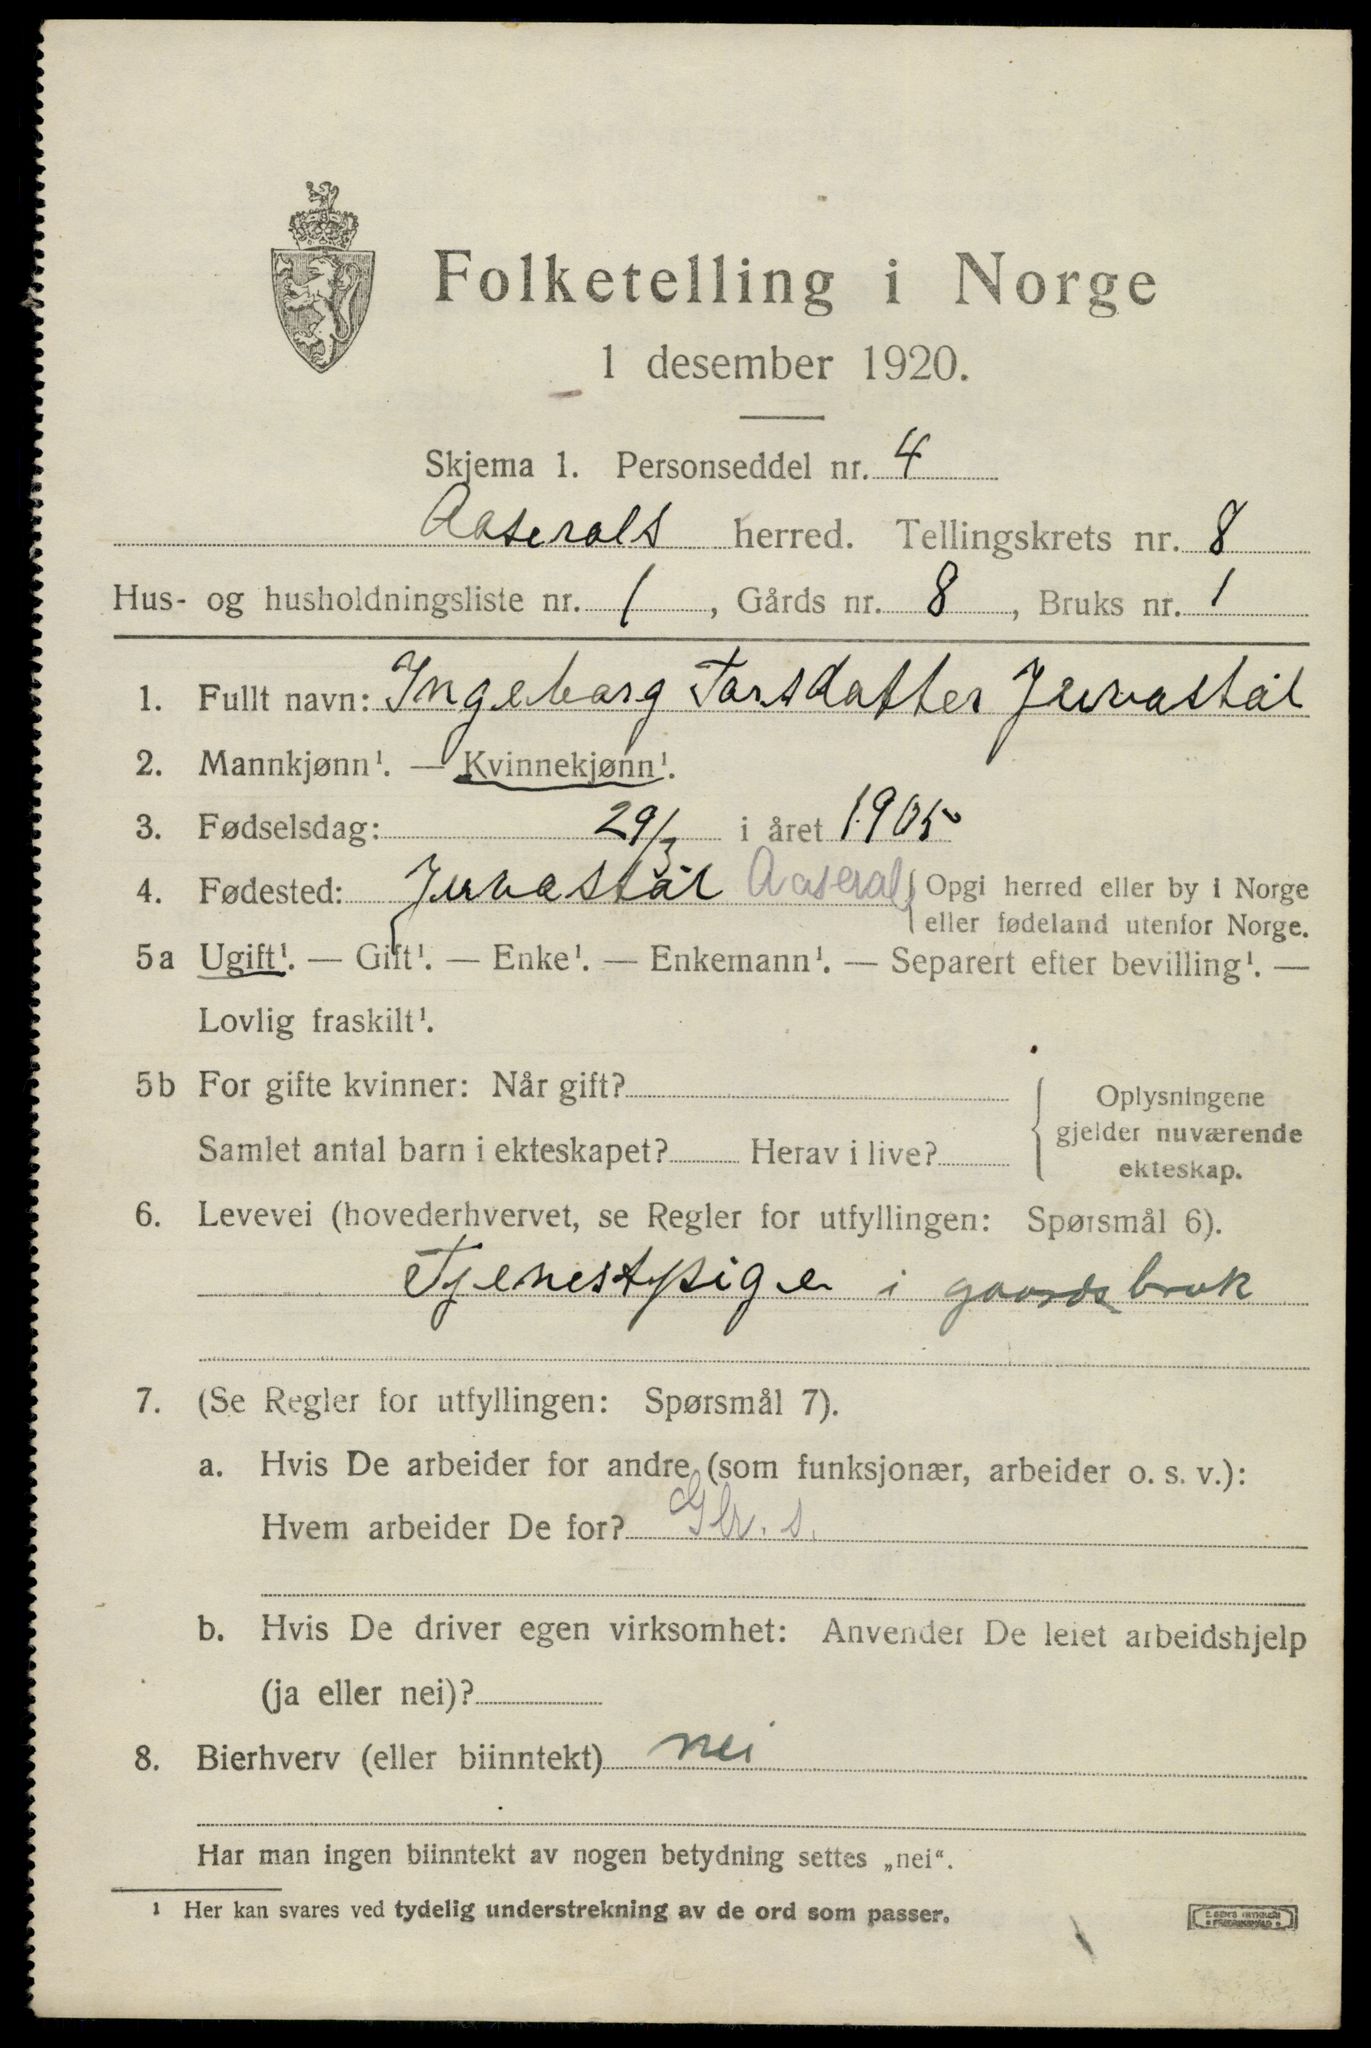 Folketelling i Norge
1 desember 1920.
Skjema 1. Personseddel nr. 4
Aaserals herred. Tellingskrets nr. 8
Hus- og husholdningsliste nr. 1, Gårds nr. 8, Bruks nr. 1
1. Fullt navn: Ingeborg Torsdatter Juvastøl
2. Mannkjønn¹. — Kvinnekjønn¹.
3. Fødselsdag: 29/3 i året 1905
4. Fødested: Juvastøl Aaseral {Opgi herred eller by i Norge
eller fødeland utenfor Norge.
5a Ugift¹. — Gift¹. — Enke¹. — Enkemann¹. — Separert efter bevilling¹. —
Lovlig fraskilt¹.
5b For gifte kvinner: Når gift?
Samlet antal barn i ekteskapet? Herav i live?
Oplysningene
gjelder nuværende
ekteskap.
6. Levevei (hovederhvervet, se Regler for utfyllingen: Spørsmål 6).
Tjenestpige i gaardsbruk
7. (Se Regler for utfyllingen: Spørsmål 7).
a. Hvis De arbeider for andre (som funksjonær, arbeider o. s. v.):
Hvem arbeider De for?
b. Hvis De driver egen virksomhet: Anvender De leiet arbeidshjelp
(ja eller nei)?
8. Bierhverv (eller biinntekt) nei
Har man ingen biinntekt av nogen betydning settes „nei“.
¹ Her kan svares ved tydelig understrekning av de ord som passer.